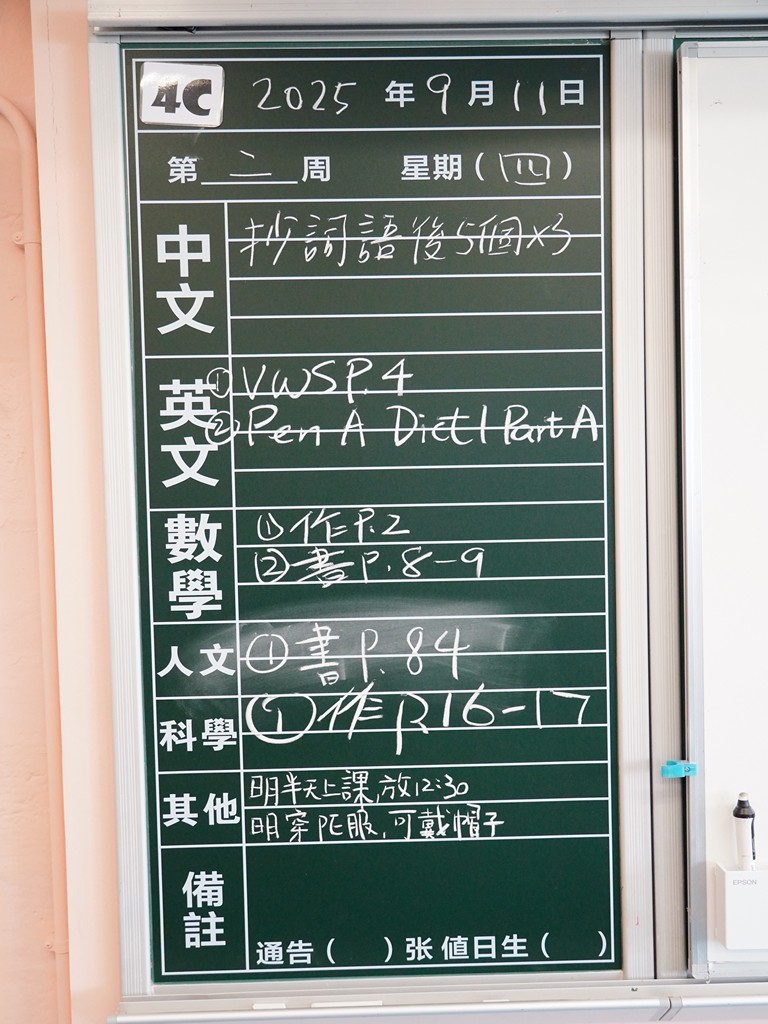 4C 2025 年 9 月 11 日
第 二 周 星期 ( 四 )
中文 抄詞語後5個x3
英文 ① VWS P.4
② Pen A Dict 1 Part A
數學 ① 作 P.2
② 書 P.8-9
人文 ① 書 P.84
科學 ① 作 P.16-17
其他 明半天上課,放12:30
明穿PE服,可戴帽子
備註
通告 ( ) 张 值日生 ( )
EPSON